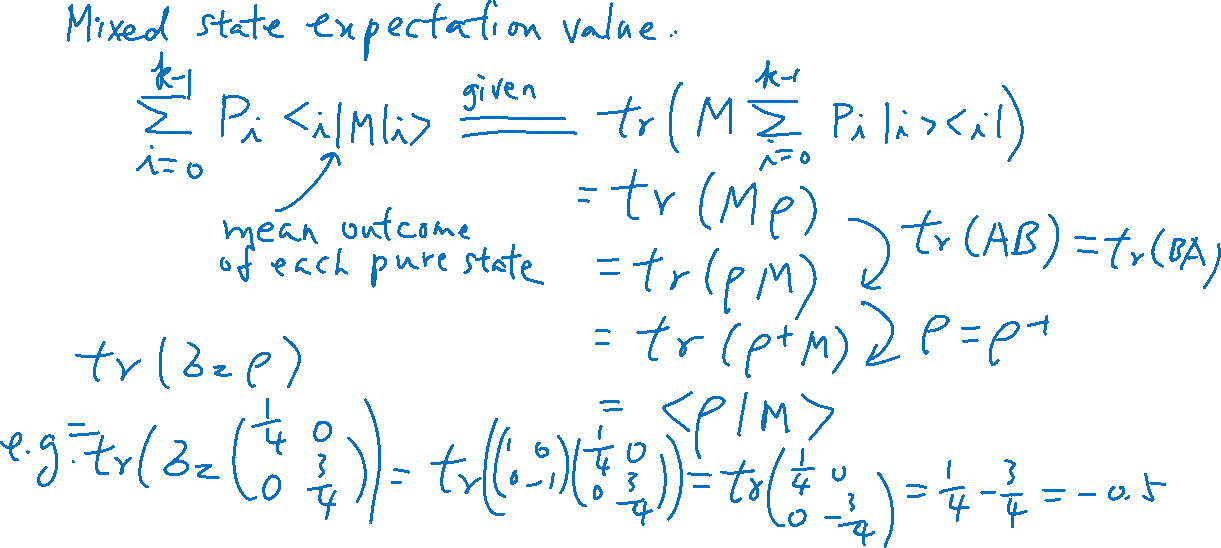 Mixed state expectation value.
∑_{i=0}^{k-1} P_i <i|M|i> =(given)= tr(M ∑_{i=0}^{k-1} P_i |i><i|)
mean outcome
of each pure state
= tr(Mρ)
= tr(ρM) tr(AB) = tr(BA)
= tr(ρ†M) ρ = ρ†
= <ρ|M>
tr(σ_z ρ)
e.g. = tr(σ_z (1/4 0 0 3/4)) = tr((1 0 0 -1)(1/4 0 0 3/4)) = tr(1/4 0 0 -3/4) = 1/4 - 3/4 = -0.5